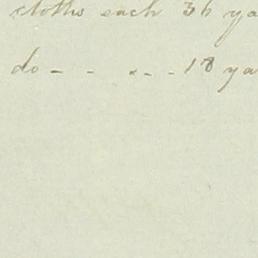 cloths each 36 ya
do - - - - - 18 ya